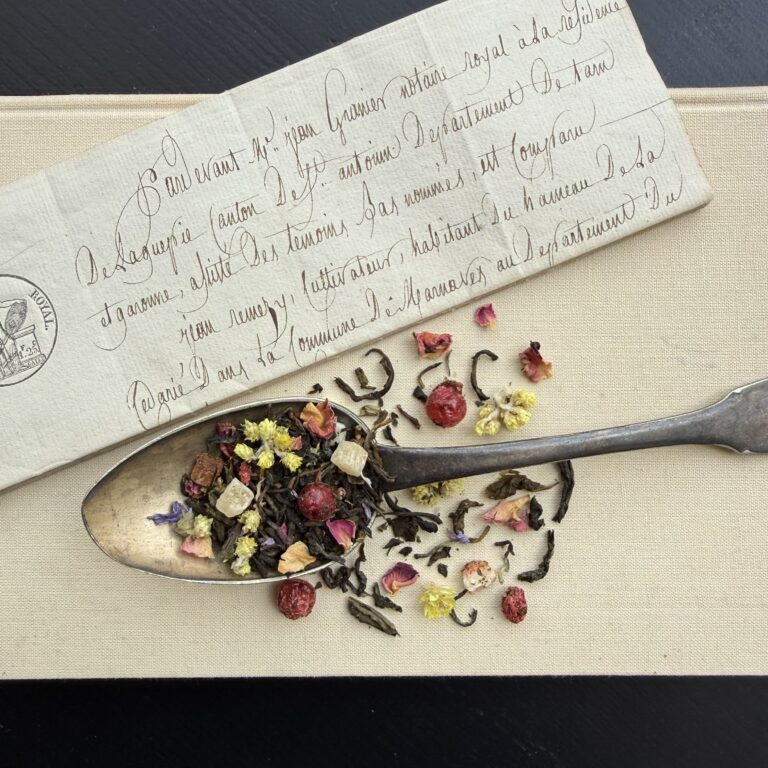 Pardevant Me. jean Granier notaire royal à La résidence
De Laguepie Canton De St. antonin Departement De tarn
et garonne, assisté Des temoins bas nommés, est Comparu
jean remezy, Cultivateur, habitant Du hameau De La
Devarié Dans La Commune De Marnaves au Departement Du
ROYAL.
1F.25